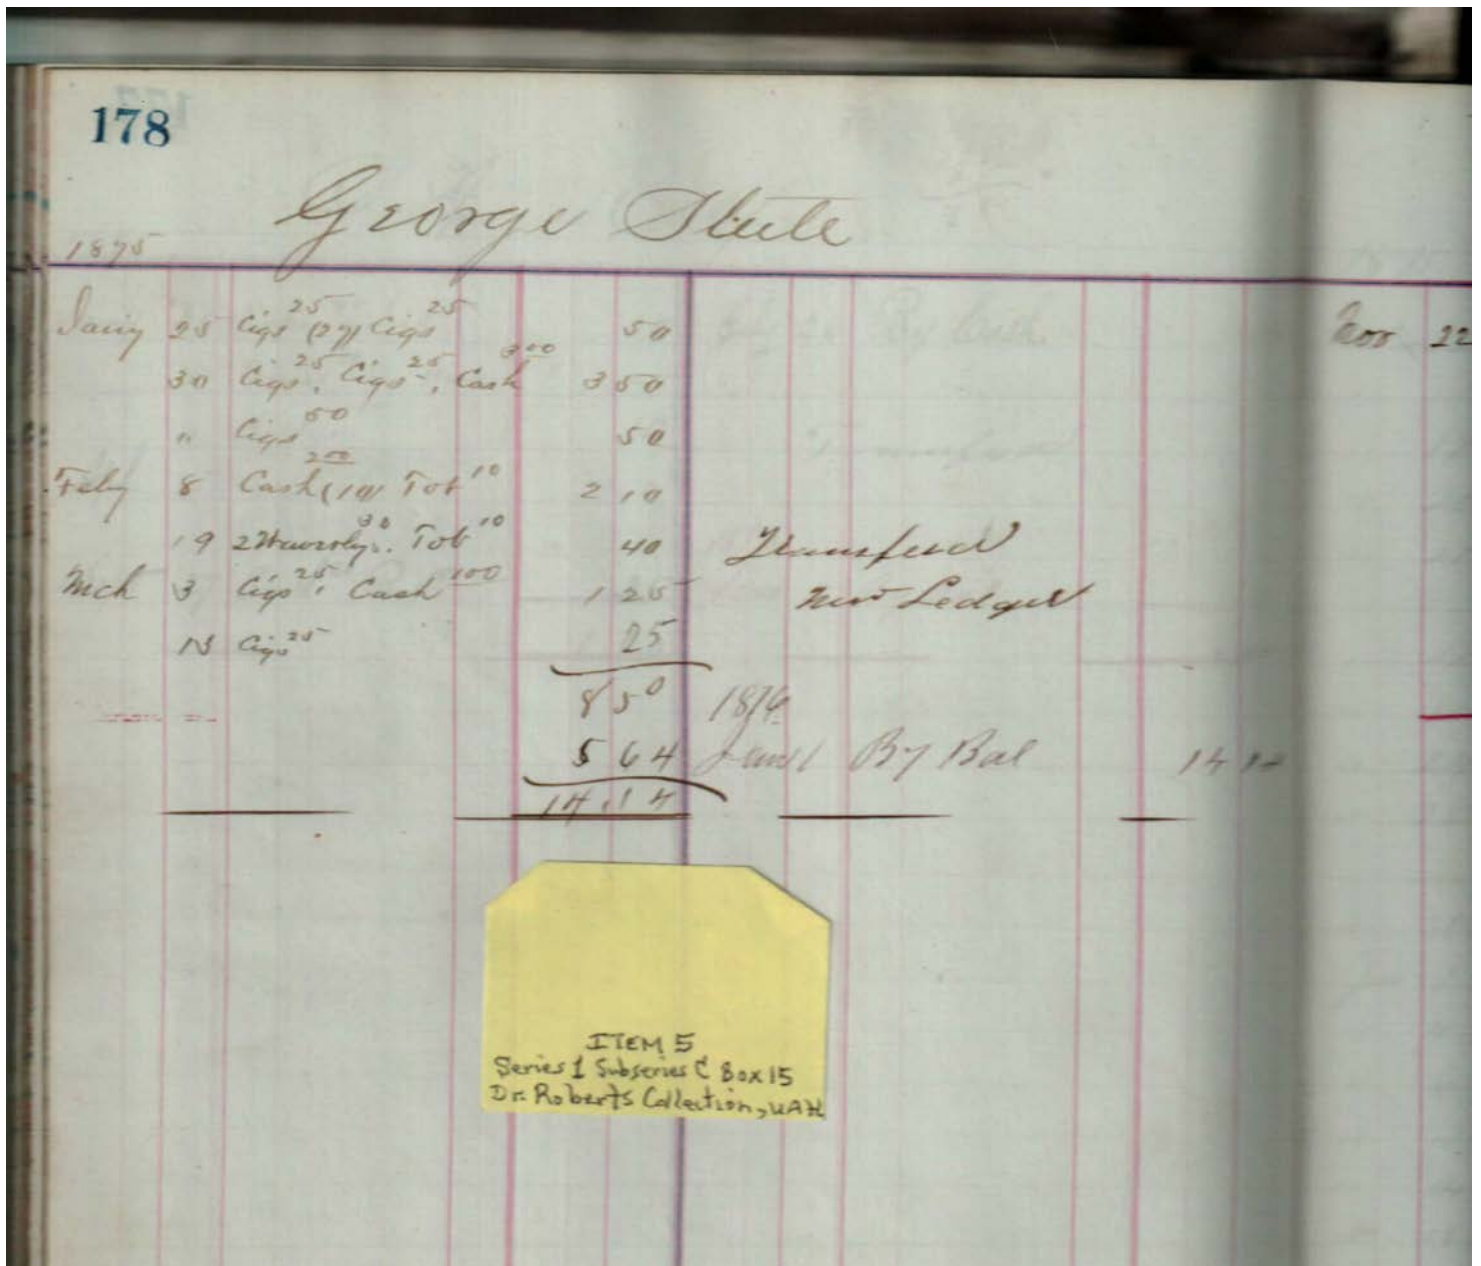 178
George Steele
1875
Jany 25 Cigs 25 (27) Cigs 25 50
30 Cigs 25, Cigs 25, Cash 300 3 50
" Cigs 50 50
Feby 8 Cash 200 (10) Tob 10 2 10
19 2 30. Tob 10 40
Mch 3 Cigs 25, Cash 100 1 25
13 Cigs 25 25
Transfered
New Ledger
8 50 1876
5 64 By Bal 14 14
14.14
Nov 22
ITEM 5
Series 1 Subseries C Box 15
Dr. Roberts Collection, UAH